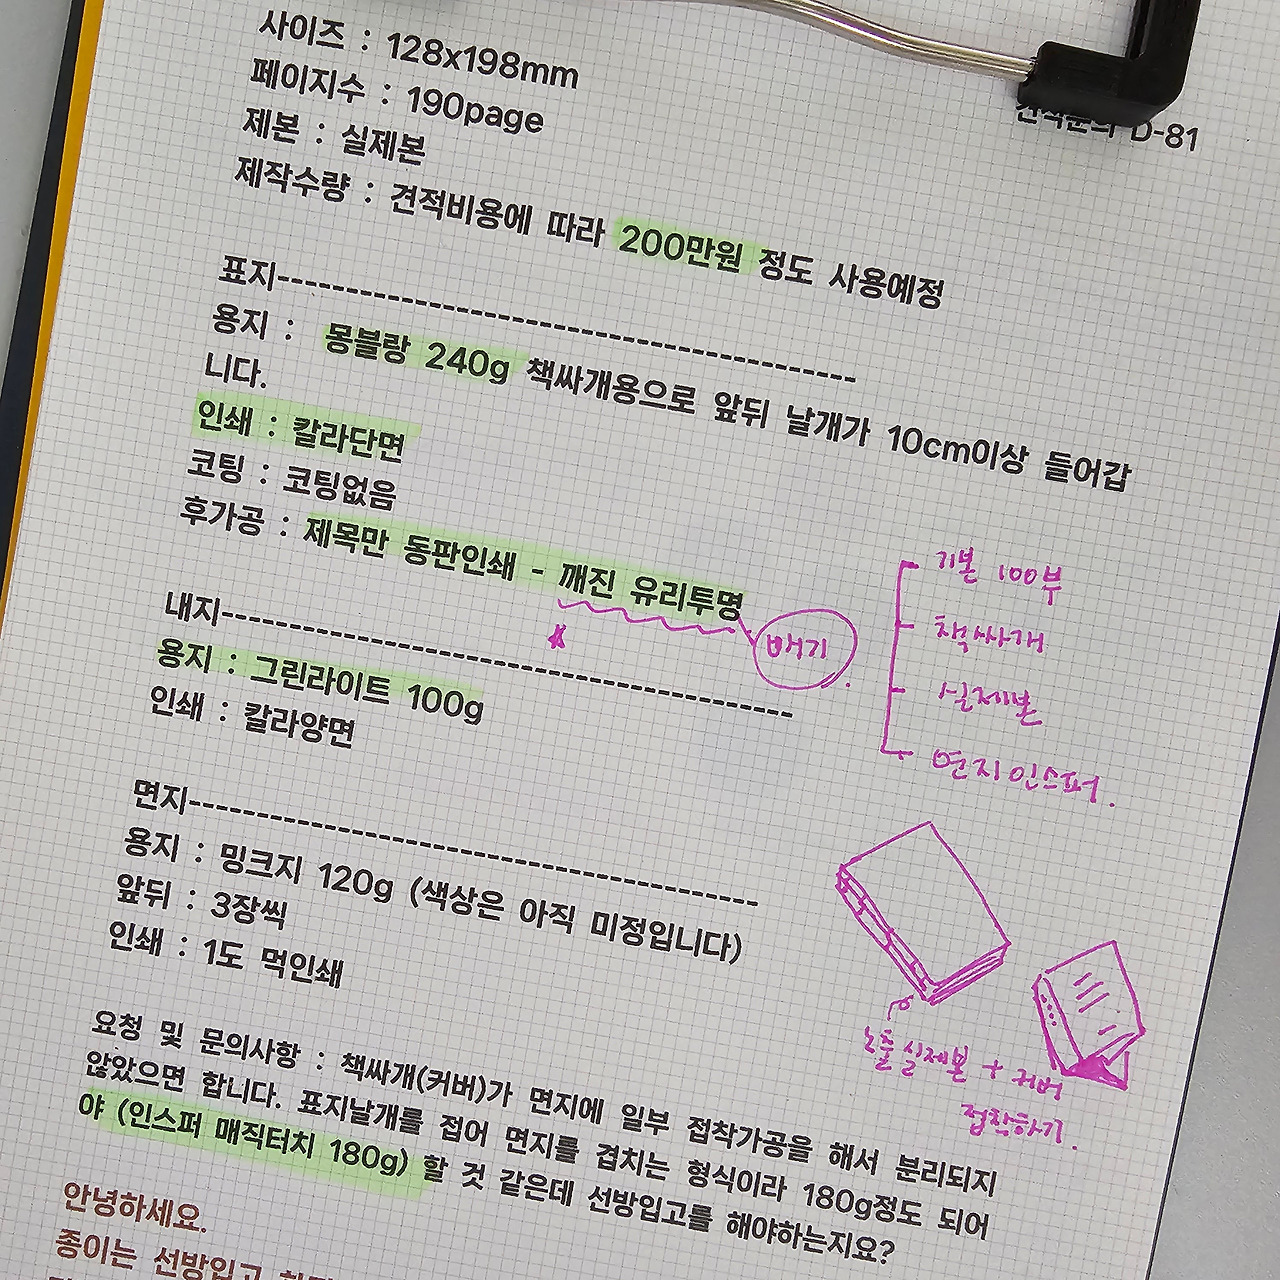 사이즈 : 128x198mm
페이지수 : 190page
제본 : 실제본
D-81
제작수량 : 견적비용에 따라 200만원 정도 사용예정
표지--------------------------------------------------
용지 : 몽블랑 240g 책싸개용으로 앞뒤 날개가 10cm이상 들어갑
니다.
인쇄 : 칼라단면
코팅 : 코팅없음
후가공 : 제목만 동판인쇄 - 깨진 유리투명
배기
기본 100부
책싸개
실제본
면지 인스퍼.
내지--------------------------------------------------
용지 : 그린라이트 100g
인쇄 : 칼라양면
면지--------------------------------------------------
용지 : 밍크지 120g (색상은 아직 미정입니다)
앞뒤 : 3장씩
인쇄 : 1도 먹인쇄
노출 실제본 + 커버
접착하기.
요청 및 문의사항 : 책싸개(커버)가 면지에 일부 접착가공을 해서 분리되지
않았으면 합니다. 표지날개를 접어 면지를 겹치는 형식이라 180g정도 되어
야 (인스퍼 매직터치 180g) 할 것 같은데 선방입고를 해야하는지요?
안녕하세요.
종이는 선방입고